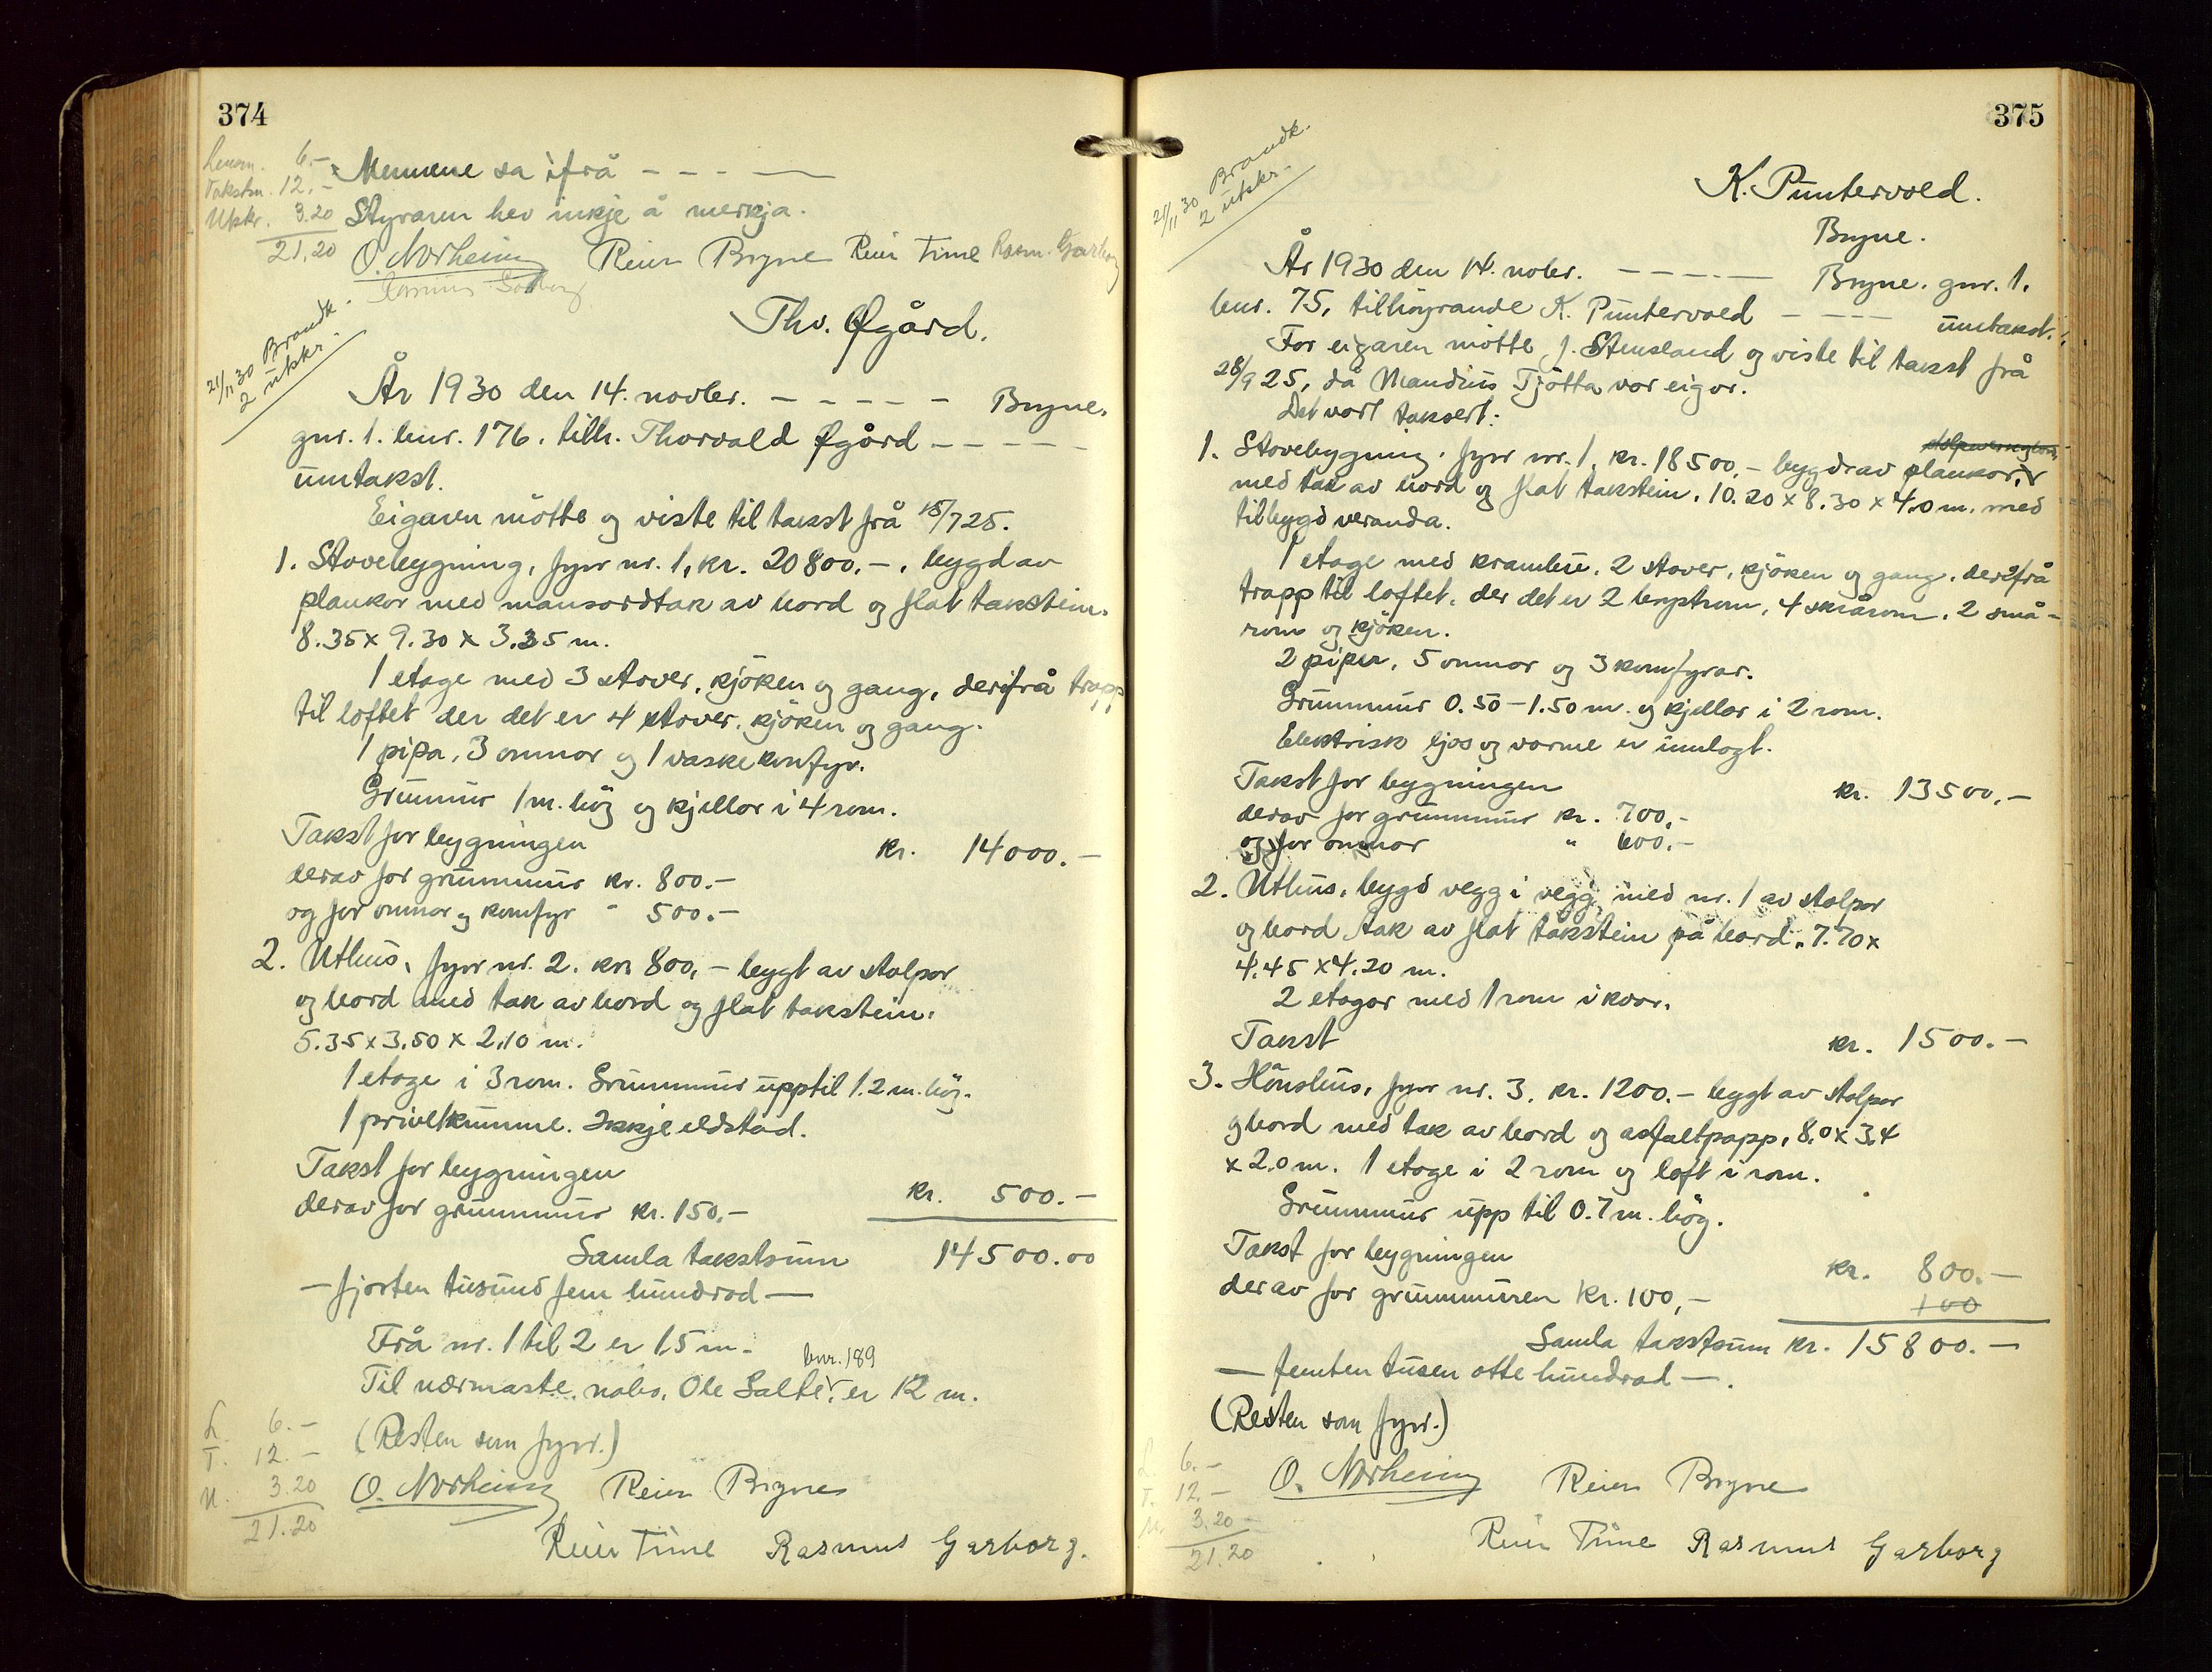 374
Lensm. 6.-
Takstm. 12.-
Utskr. 3.20
21.20
Mennene sa ifrå - - - —
Styraren hev inkje å merkja.
O. Norheim Reier Bryne Reier Time Rasm. Garborg
Rasmus Garborg
Thv. Øgård.
21/11 30 Brandk.
2 utskr.
År 1930 den 14. novbr. - - - - - Bryne.
gnr. 1. bnr. 176. tilh. Thorvald Øgård - - - - -
umtakst.
Eigaren møtte og viste til takst frå 15/7 25.
1. Stovebygning, fyrr nr. 1, kr. 20800.-. bygd av
plankor med mansardtak av bord og flat takstein.
8.35 x 9.30 x 3.35 m.
1 etage med 3 stover, kjöken og gang, derifrå trapp
til loftet der det er 4 stover, kjöken og gang.
1 pipa, 3 omnar og 1 vaskekomfyr.
Grunnmur 1 m. hög og kjellar i 4 rom.
Takst for bygningen kr. 14000.-
derav for grunnmur kr. 800.-
og for omnar og komfyr " 500.-
2. Uthus, fyrr nr. 2. kr. 800,- bygt av stolpar
og bord med tak av bord og flat takstein.
5.35 x 3.50 x 2.10 m.
1 etage i 3 rom. Grunnmur upptil 1.2 m. hög.
1 privetkumme. Inkje eldstad.
Takst for bygningen kr. 500.-
derav for grunnmur kr. 150.-
Samla takstsum 14500.00
— fjorten tusund fem hundrad —
Frå nr. 1 til 2 er 1,5 m.
bnr. 189
Til nærmaste nabo, Ole Salte, er 12 m.
(Resten som fyrr.)
L. 6.-
T. 12.-
U. 3.20
21.20
O. Norheim Reier Bryne
Reier Time Rasmus Garborg.
375
21/11 30 Brandk.
2 utskr.
K. Puntervold.
Bryne.
År 1930 den 14. nobr. - - - - — Bryne. gnr. 1.
bnr. 75, tilhøyrande K. Puntervold - - - - umtakst.
For eigaren møtte J. Stensland og viste til takst frå
28/9 25, då Mandius Tjötta var eigar.
Det vart taksert:
1. Stovebygning, fyrr nr. 1. kr. 18500,- bygd av plankor,
med tak av bord og flat takstein. 10.20 x 8.30 x 4.0 m. med
tilbygd veranda.
1 etage med krambu, 2 stover, kjöken og gang. derifrå
trapp til loftet, der det er 2 brystrom, 4 skrårom, 2 små-
rom og kjöken.
2 pipur, 5 omnar og 3 komfyrar.
Grunnmur 0.50 - 1.50 m. og kjellar i 2 rom.
Elektrisk ljos og varme er innlagt.
Takst for bygningen kr. 13500.-
derav for grunnmur kr. 700.-
og for omnar " 600.-
2. Uthus, bygd vegg i vegg med nr. 1 av stolpar
og bord tak av flat takstein på bord. 7.70 x
4.45 x 4.20 m.
2 etagar med 1 rom i kvar.
Takst kr. 1500.-
3. Hönshus, fyrr nr. 3. kr. 1200.- bygt av stolpar
og bord med tak av bord og asfaltpapp, 8.0 x 3.4
x 2.0 m. 1 etage i 2 rom og loft i rom.
Grunnmur upp til 0.7 m. hög.
Takst for bygningen kr. 800.-
derav for grunnmuren kr. 100,- 100
Samla takstsum kr. 15800.-
— femten tusen otte hundrad —.
(Resten som fyrr.)
L 6.-
T. 12.-
U. 3.20
21.20
O. Norheim Reier Bryne
Reier Time Rasmus Garborg